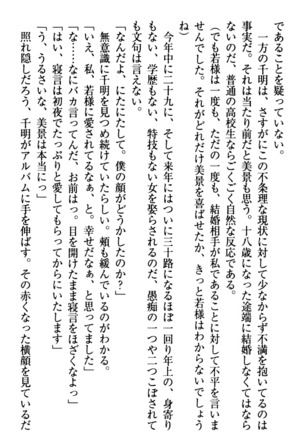 であることを疑っていない。
　一方の千明は、さすがにこの不条理な現状に対して少なからず不満を抱いてるのは
事実だ。それは当たり前だと美景も思う。十八歳になった途端に結婚しなくてはなら
ないのだ、普通の高校生ならごくごく自然な反応である。
（でも若様は、ただの一度も、結婚相手が私であることに対して不平を言いま
せんでした。それがどれだけ美景を喜ばせたか、きっと若様はわからないでしょう
ね）
　今年中に二十九に、そして来年にはついに三十路になるほぼ一回り年上の、身寄り
もない、学歴もない、特技もない女を娶らされるのだ、愚痴の一つや二つこぼされて
も文句は言えない。
「なんだよ、にたにたして。僕の顔がどうかしたのか？」
　無意識に千明を見つめ続けていたらしい。頬も緩んでいるのがわかる。
「いえ、私、若様に愛されてるなぁ、と。幸せだなぁ、と思ってました」
「な……なにバカ言ってんだ、お前はっ。目を開けたまま寝言をほざくなよ」
「はい、寝言は初夜でたっぷりと愛してもらってからにいたします」
「う、うるさいな、美景は本当にっ」
　照れ隠しだろう、千明がアルバムに手を伸ばす。その赤くなった横顔を見ているだ